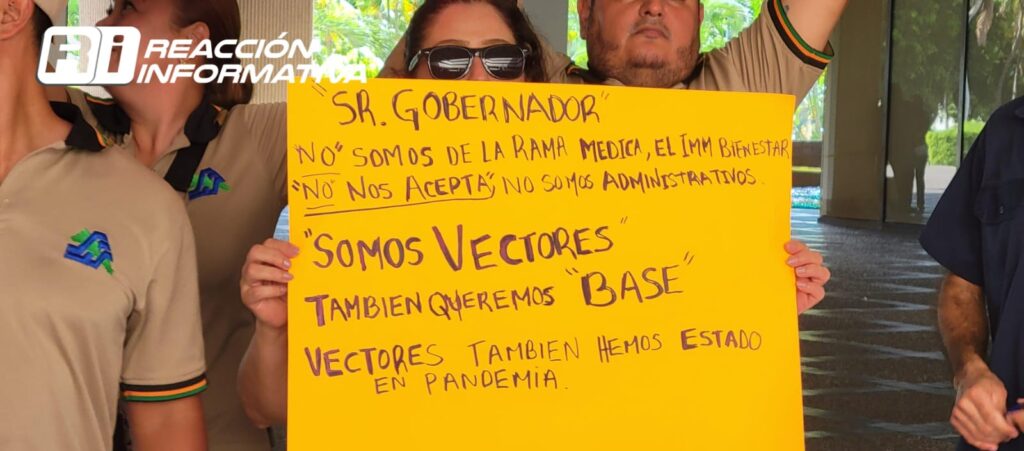 Ri REACCIÓN
INFORMATIVA
"SR. GOBERNADOR"
"NO" SOMOS DE LA RAMA MEDICA, EL IMM BIENESTAR
"NO NOS ACEPTA", NO SOMOS ADMINISTRATIVOS.
"SOMOS VECTORES"
TAMBIEN QUEREMOS "BASE"
VECTORES TAMBIEN HEMOS ESTADO
EN PANDEMIA.